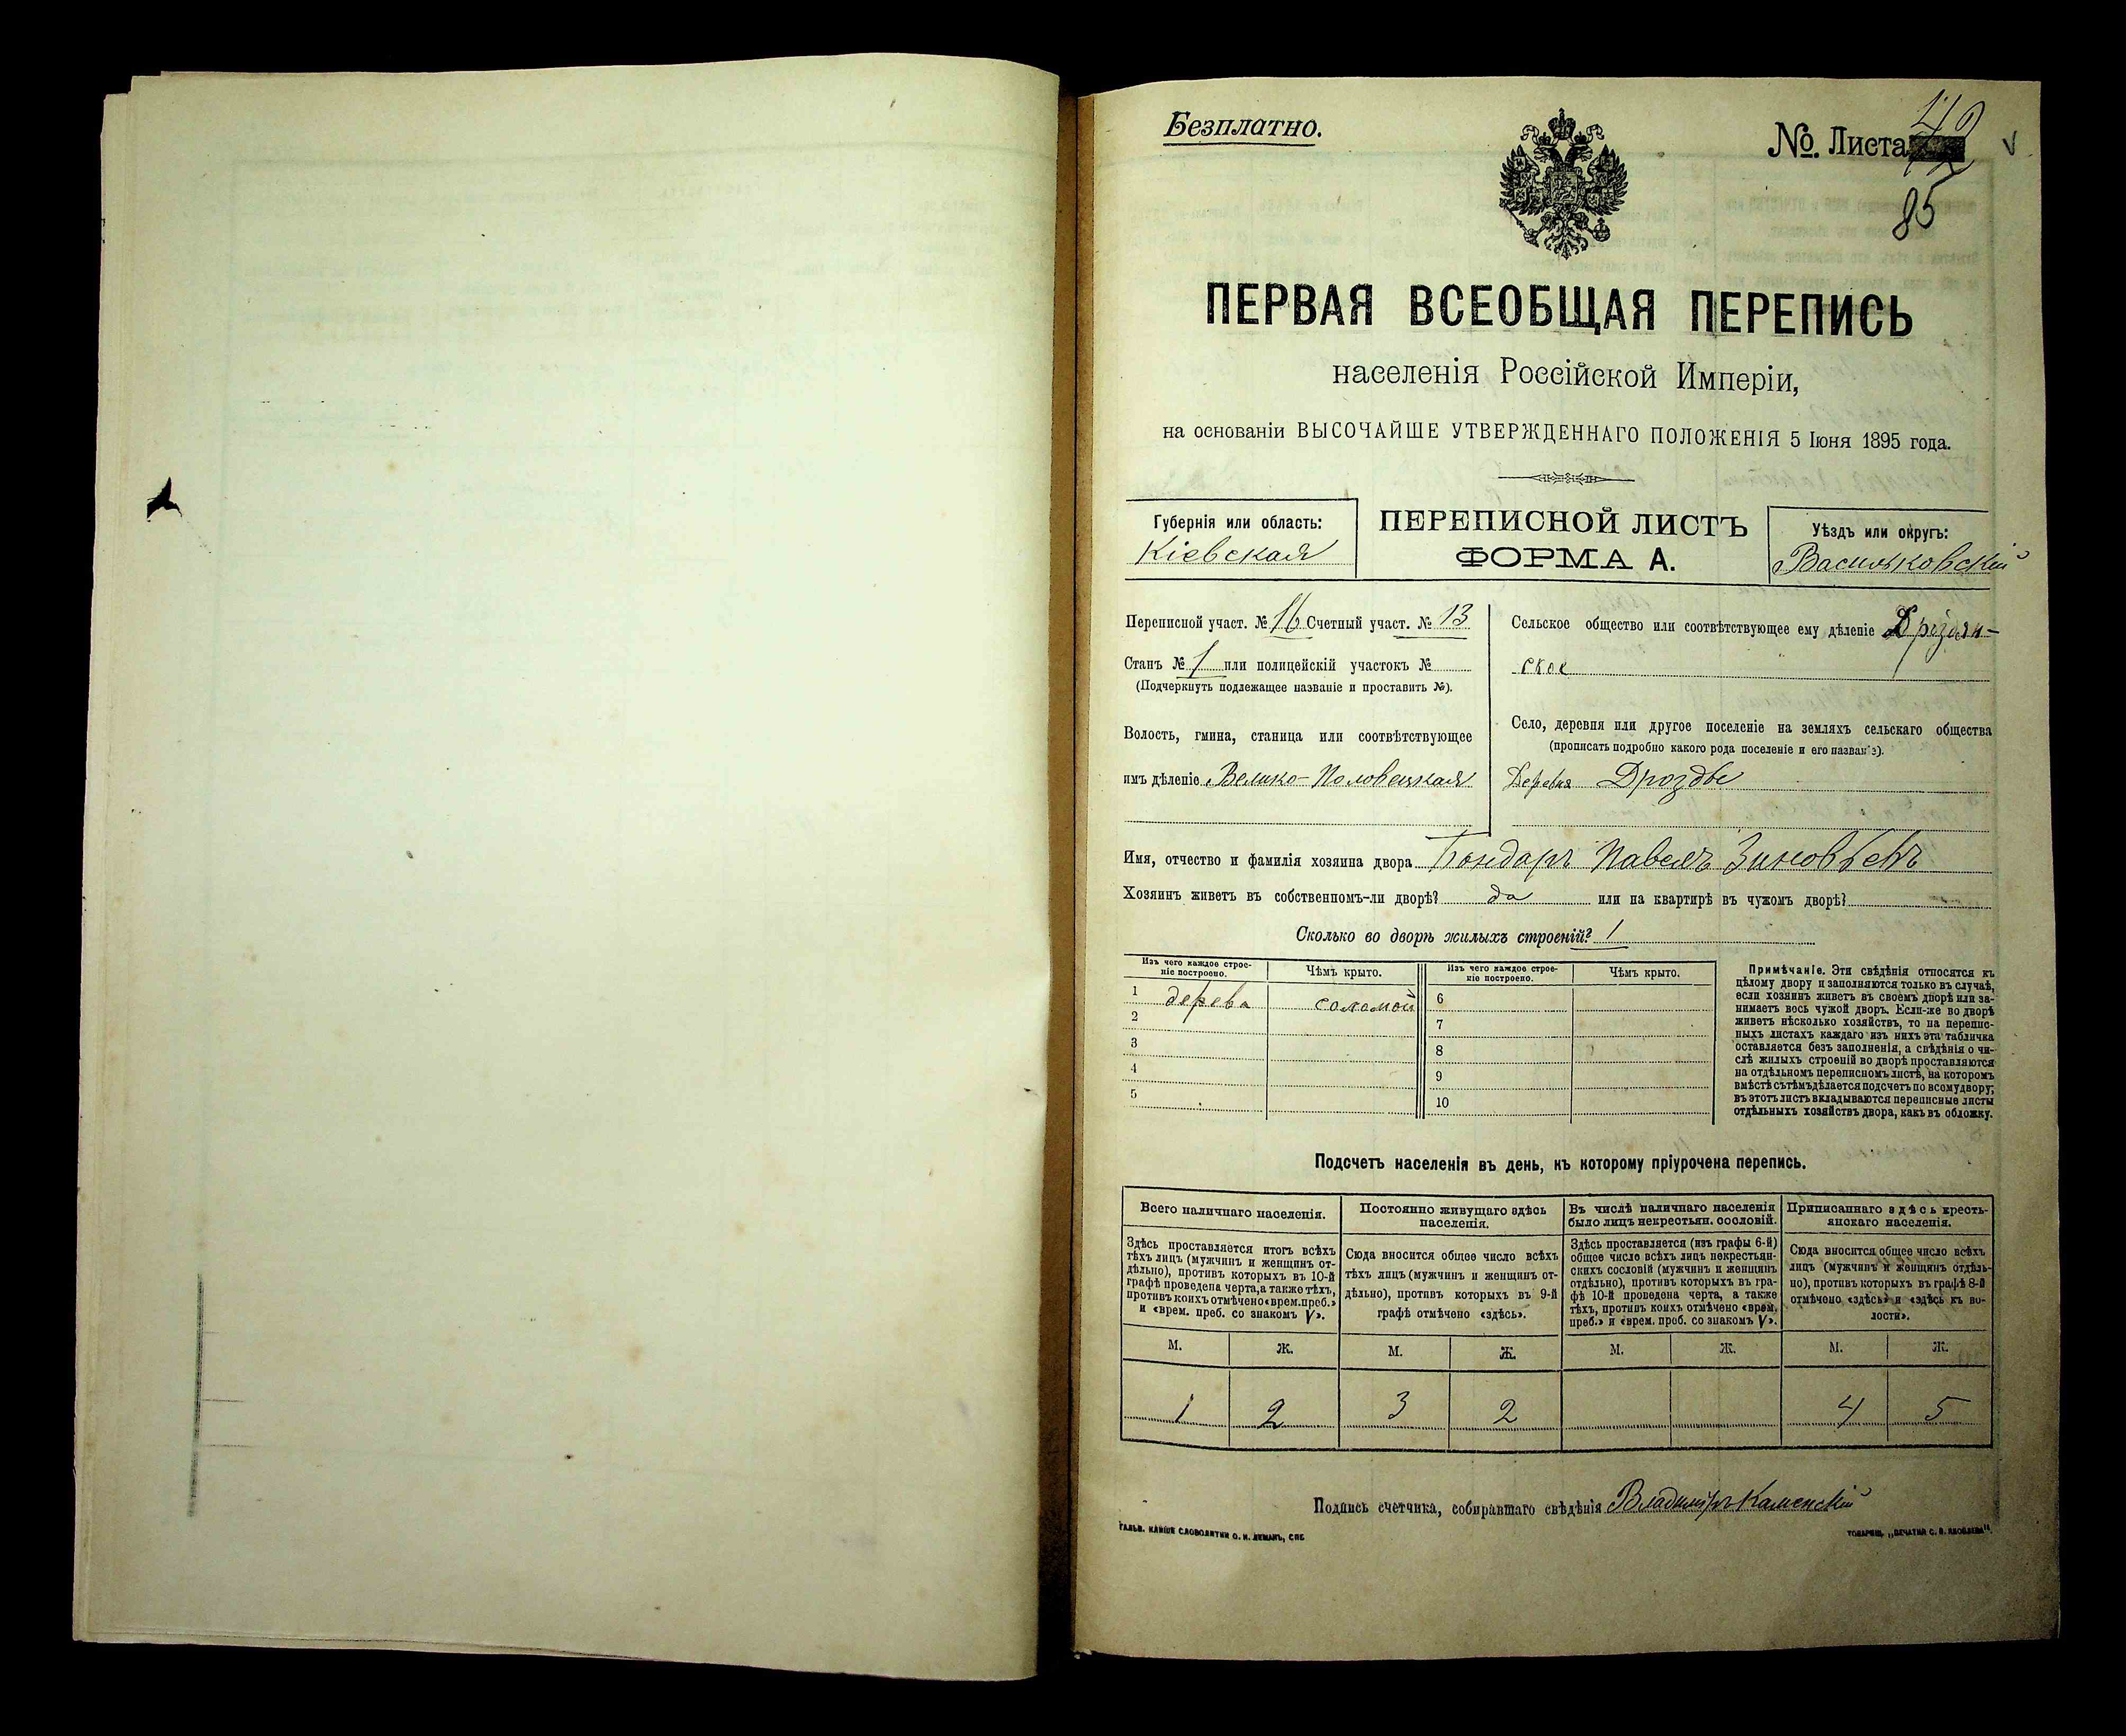 Безплатно.
№. Листа 42
85
ПЕРВАЯ ВСЕОБЩАЯ ПЕРЕПИСЬ
населенія Россійской Имперіи,
на основаніи ВЫСОЧАЙШЕ УТВЕРЖДЕННАГО ПОЛОЖЕНІЯ 5 Іюня 1895 года.
Губернія или область:
Кіевская
ПЕРЕПИСНОЙ ЛИСТЪ
ФОРМА А.
Уѣздъ или округъ:
Васильковскій
Переписной участ. № 16 Счетный участ. № 13
Станъ № 1 или полицейскій участокъ №
(Подчеркнуть подлежащее названіе и проставить №).
Волость, гмина, станица или соотвѣтствующее
имъ дѣленіе Велико-Половецкая
Сельское общество или соотвѣтствующее ему дѣленіе Дроздян-
ское
Село, деревня или другое поселеніе на земляхъ сельскаго общества
(прописать подробно какого рода поселеніе и его названіе).
Деревня Дрозды
Имя, отчество и фамилія хозяина двора Бондарь Павелъ Зиновьевъ
Хозяинъ живетъ въ собственномъ-ли дворѣ? да или на квартирѣ въ чужомъ дворѣ?
Сколько во дворѣ жилыхъ строеній? 1
Изъ чего каждое строе-
ніе построено.
Чѣмъ крыто.
Изъ чего каждое строе-
ніе построено.
Чѣмъ крыто.
1 дерева соломой 6
2 7
3 8
4 9
5 10
Примѣчаніе. Эти свѣдѣнія относятся къ
цѣлому двору и заполняются только въ случаѣ,
если хозяинъ живетъ въ своемъ дворѣ или за-
нимаетъ весь чужой дворъ. Если-же во дворѣ
живетъ нѣсколько хозяйствъ, то на перепис-
ныхъ листахъ каждаго изъ нихъ эта табличка
оставляется безъ заполненія, а свѣдѣнія о чи-
слѣ жилыхъ строеній во дворѣ проставляются
на отдѣльномъ переписномъ листѣ, на которомъ
вмѣстѣ съ тѣмъ дѣлается подсчетъ по всему двору;
въ этотъ листъ вкладываются переписные листы
отдѣльныхъ хозяйствъ двора, какъ въ обложку.
Подсчетъ населенія въ день, къ которому пріурочена перепись.
Всего наличнаго населенія.
Здѣсь проставляется итогъ всѣхъ
тѣхъ лицъ (мужчинъ и женщинъ от-
дѣльно), противъ которыхъ въ 10-й
графѣ проведена черта, а также тѣхъ,
противъ коихъ отмѣчено «врем. преб.»
и «врем. преб. со знакомъ V».
Постоянно живущаго здѣсь
населенія.
Сюда вносится общее число всѣхъ
тѣхъ лицъ (мужчинъ и женщинъ от-
дѣльно), противъ которыхъ въ 9-й
графѣ отмѣчено «здѣсь».
Въ числѣ наличнаго населенія
было лицъ некрестьян. сословій.
Здѣсь проставляется (изъ графы 6-й)
общее число всѣхъ лицъ некрестьян-
скихъ сословій (мужчинъ и женщинъ
отдѣльно), противъ которыхъ въ гра-
фѣ 10-й проведена черта, а также
тѣхъ, противъ коихъ отмѣчено «врем.
преб.» и «врем. преб. со знакомъ V».
Приписаннаго здѣсь кресть-
янскаго населенія.
Сюда вносится общее число всѣхъ
лицъ (мужчинъ и женщинъ отдѣль-
но), противъ которыхъ въ графѣ 8-й
отмѣчено «здѣсь» и «здѣсь къ во-
лости».
М. Ж. М. Ж. М. Ж. М. Ж.
1 2 3 2 4 5
Подпись счетчика, собиравшаго свѣдѣнія Владиміръ Каменскій
ГАЛЬВ. КЛИШЕ СЛОВОЛИТНИ О. И. ЛЕМАНЪ, СПБ
ТОВАРИЩ. „ПЕЧАТНЯ С. П. ЯКОВЛЕВА".